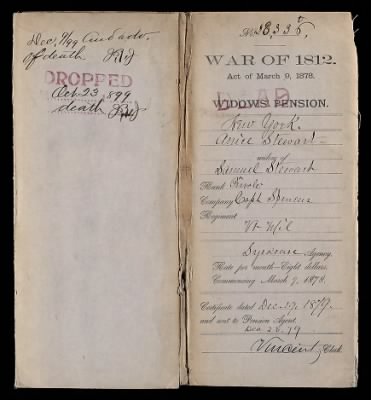 Dec. 9/99
of death
DROPPED
Oct 23, 1899
death
No. 18,335,
WAR OF 1812.
Act of March 9, 1878.
DEAD
WIDOW'S PENSION.
New York.
Annice Stewart
widow of
Samuel Stewart
Rank Private
Company Capt Spencer
Regiment
Vt Mil
Syracuse Agency.
Rate per month—Eight dollars.
Commencing March 9, 1878.
Certificate dated Dec. 19, 1879.
and sent to Pension Agent
Dec 23, 79
Vincent, Clerk.